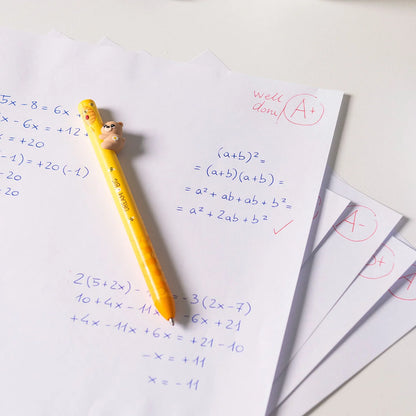 well
done!
A+
5x - 8 = 6x
x - 6x = +12
x = +20
-1) = +20 (-1)
-20
20
(a+b)² =
= (a+b)(a+b) =
= a² + ab + ab + b² =
= a² + 2ab + b²
DREAM BIG
2(5+2x) - = -3(2x-7)
10 + 4x - 11x -6x + 21
+4x - 11x + 6x = +21 - 10
-x = +11
x = -11
A-